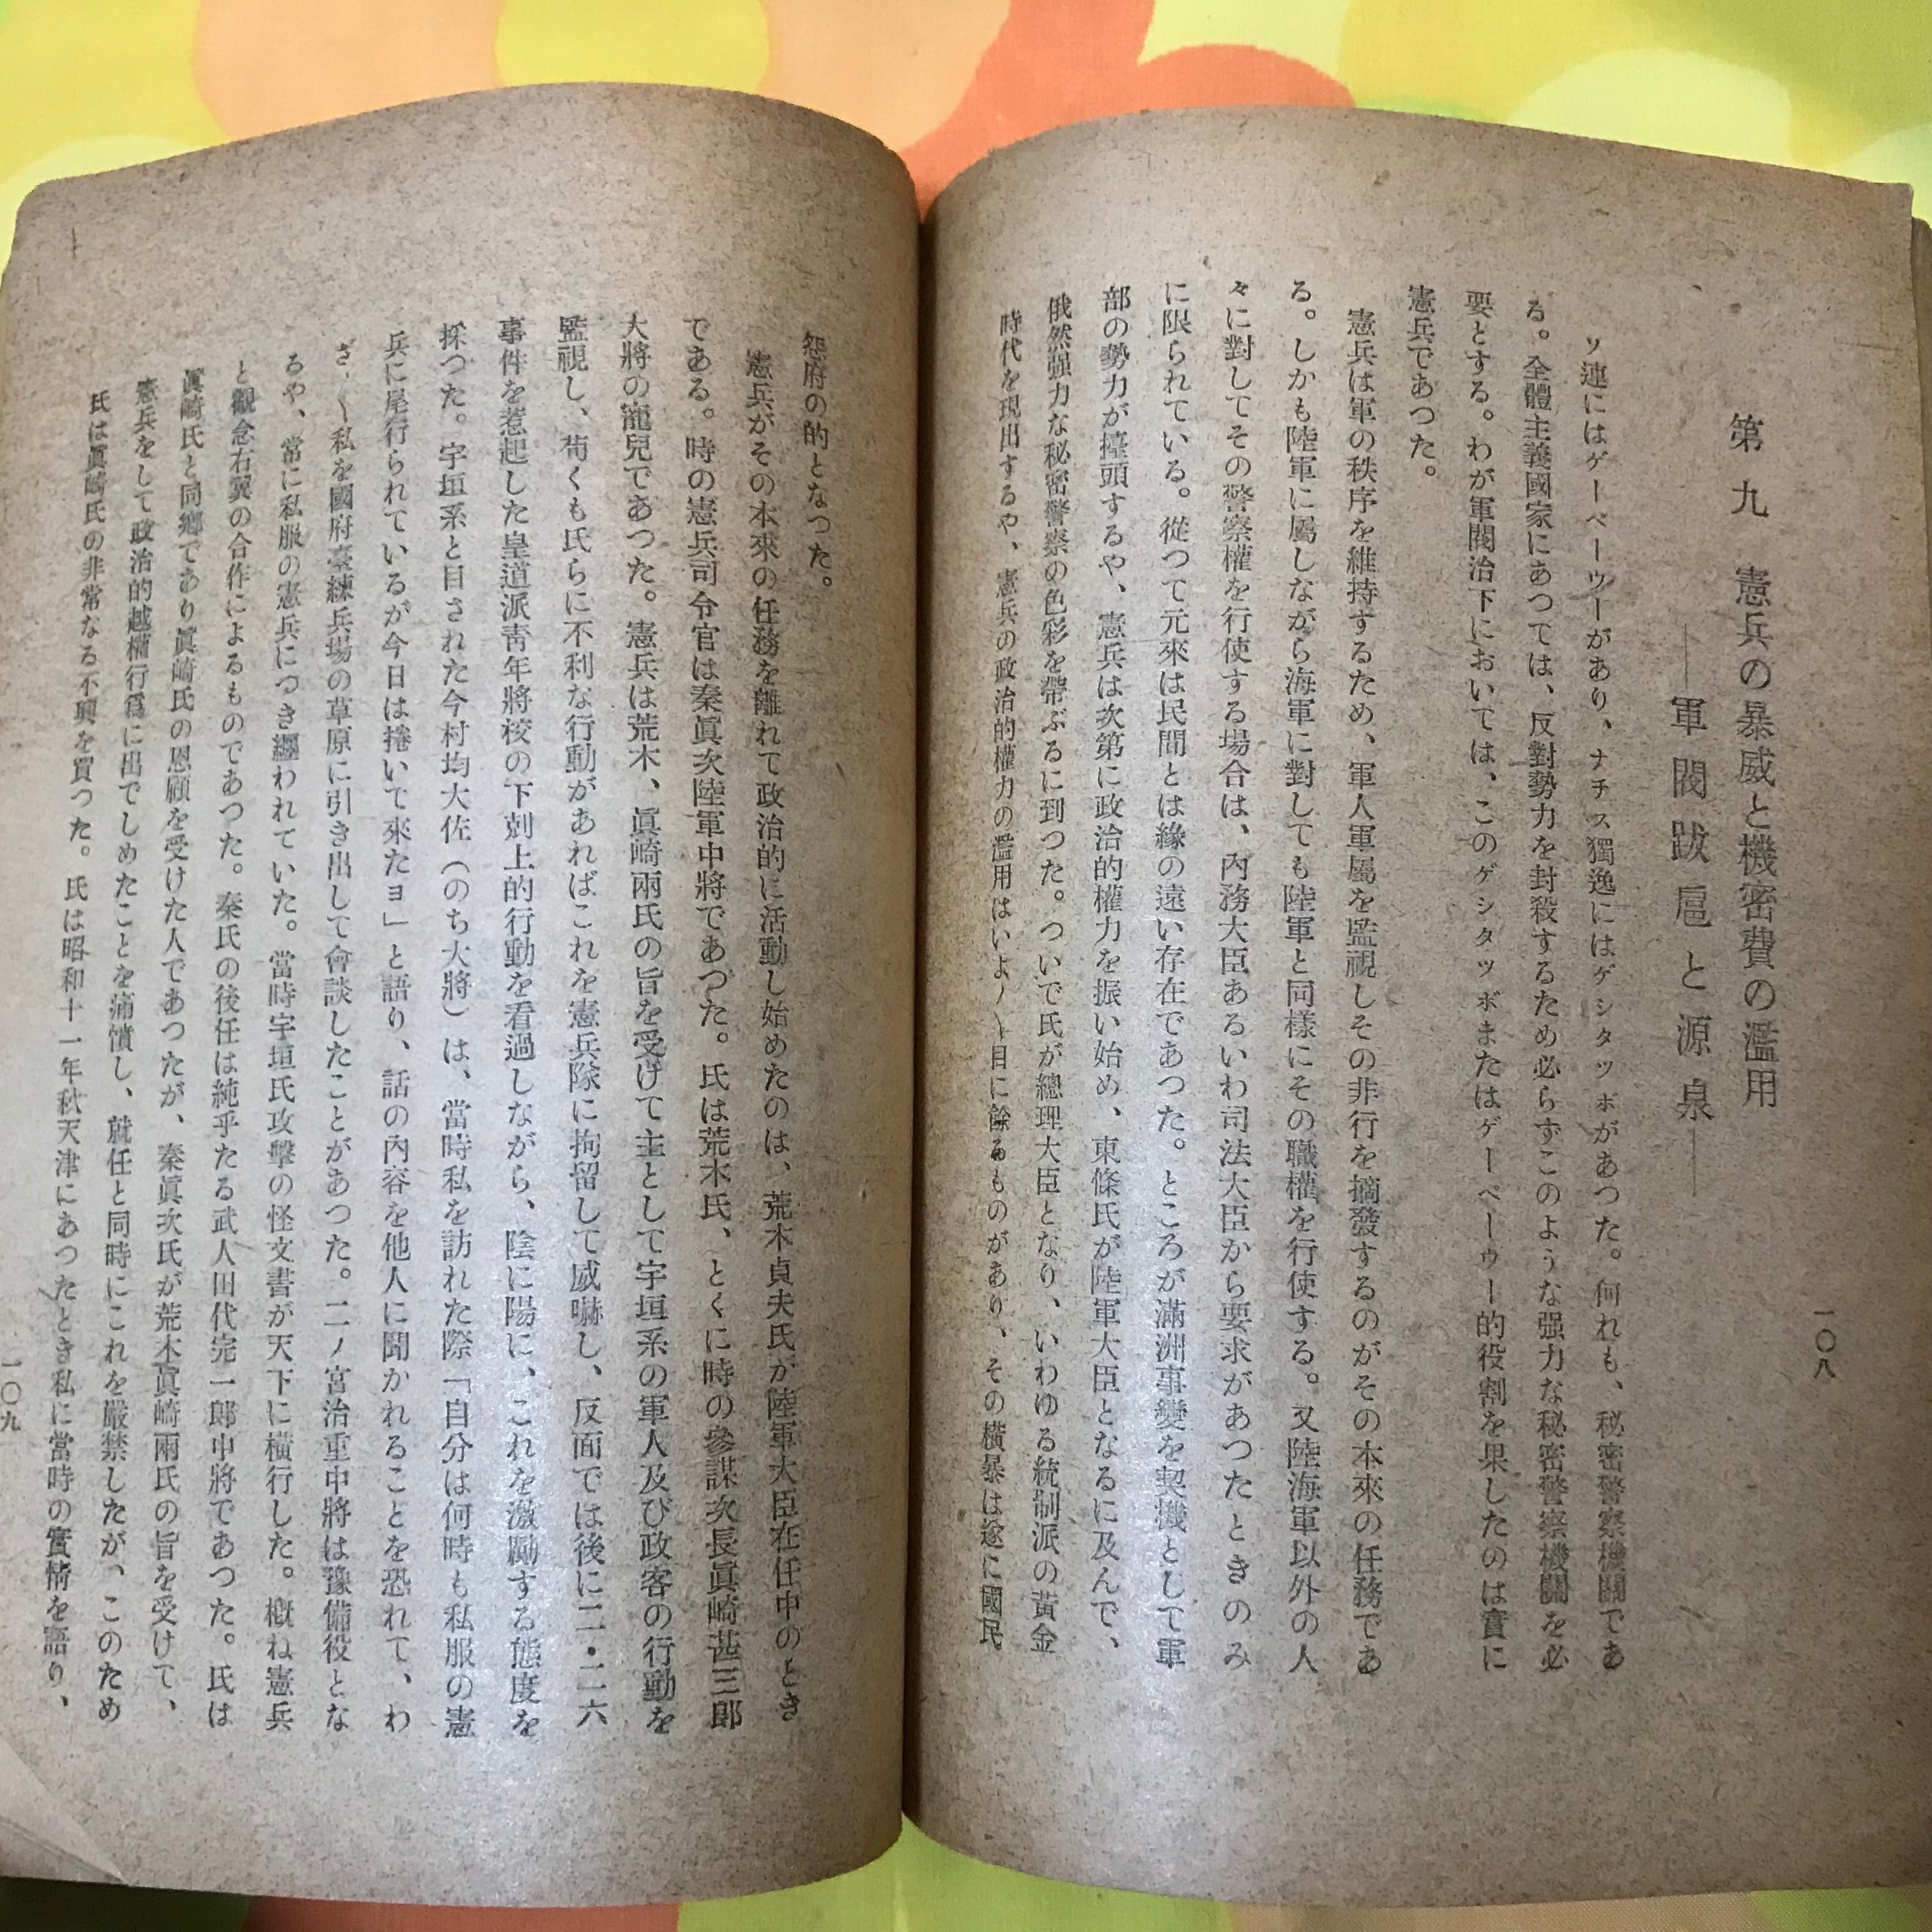 一〇八
第九 憲兵の暴威と機密費の濫用
――軍閥跋扈と源泉――
ソ連にはゲーペーウーがあり、ナチス獨逸にはゲシタツボがあつた。何れも、秘密警察機關であ
る。全體主義國家にあつては、反對勢力を封殺するため必らずこのような强力な秘密警察機關を必
要とする。わが軍閥治下においては、このゲシタツボまたはゲーペーウー的役割を果したのは實に
憲兵であつた。
憲兵は軍の秩序を維持するため、軍人軍屬を監視しその非行を摘發するのがその本來の任務であ
る。しかも陸軍に屬しながら海軍に對しても陸軍と同樣にその職權を行使する。又陸海軍以外の人
々に對してその警察權を行使する場合は、內務大臣あるいわ司法大臣から要求があつたときのみ
に限られている。從つて元來は民間とは緣の遠い存在であつた。ところが滿洲事變を契機として軍
部の勢力が擡頭するや、憲兵は次第に政治的權力を振い始め、東條氏が陸軍大臣となるに及んで、
俄然强力な秘密警察の色彩を帶ぶるに到つた。ついで氏が總理大臣となり、いわゆる統制派の黃金
時代を現出するや、憲兵の政治的權力の濫用はいよ〳〵目に餘るものがあり、その橫暴は遂に國民
怨府の的となつた。
憲兵がその本來の任務を離れて政治的に活動し始めたのは、荒木貞夫氏が陸軍大臣在任中のとき
である。時の憲兵司令官は秦眞次陸軍中將であつた。氏は荒木氏、とくに時の參謀次長眞崎甚三郎
大將の寵兒であつた。憲兵は荒木、眞崎兩氏の旨を受けて主として宇垣系の軍人及び政客の行動を
監視し、苟くも氏らに不利な行動があればこれを憲兵隊に拘留して威嚇し、反面では後に二・二六
事件を惹起した皇道派靑年將校の下剋上的行動を看過しながら、陰に陽に、これを激勵する態度を
採つた。宇垣系と目された今村均大佐（のち大將）は、當時私を訪れた際「自分は何時も私服の憲
兵に尾行られているが今日は捲いて來たヨ」と語り、話の內容を他人に聞かれることを恐れて、わ
ざ〳〵私を國府臺練兵場の草原に引き出して會談したことがあつた。二ノ宮治重中將は豫備役とな
るや、常に私服の憲兵につき纒われていた。當時宇垣氏攻擊の怪文書が天下に橫行した。槪ね憲兵
と觀念右翼の合作によるものであつた。秦氏の後任は純乎たる武人田代完一郞中將であつた。氏は
眞崎氏と同鄕であり眞崎氏の恩顧を受けた人であつたが、秦眞次氏が荒木眞崎兩氏の旨を受けて、
憲兵をして政治的越權行爲に出でしめたことを痛憤し、就任と同時にこれを嚴禁したが、このため
氏は眞崎氏の非常なる不興を買つた。氏は昭和十一年秋天津にあつたとき私に當時の實情を語り、
一〇九